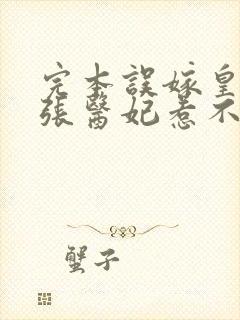 完本誤嫁皇
張醫妃惹不
蟹子